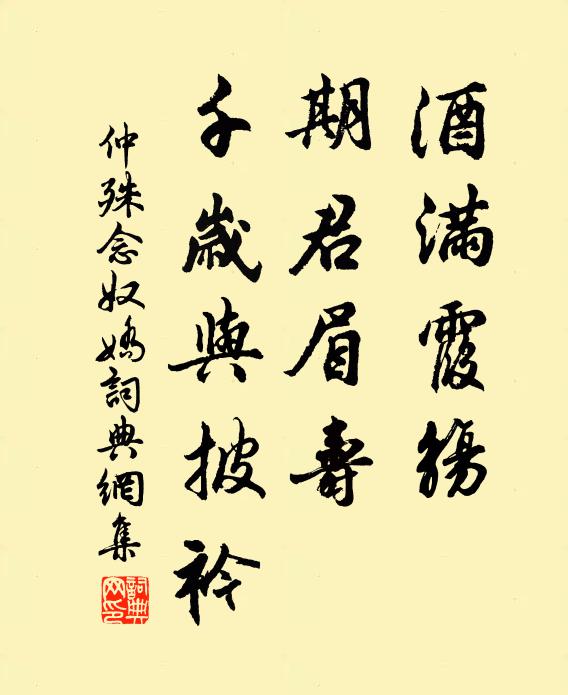 酒滿霞觴
期君眉壽
千歲與披衿
仲殊念奴嬌詞典網集
詞典网印